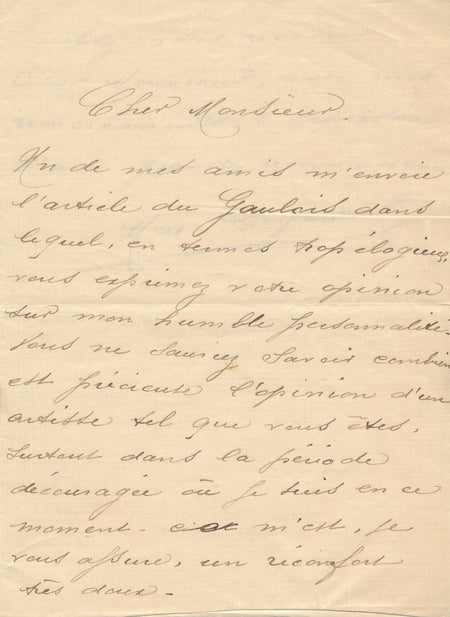 Cher Monsieur.
Un de mes amis m'envoie
l'article du Gaulois dans
lequel, en termes trop élogieux,
vous exprimez votre opinion
sur mon humble personnalité.
Vous ne sauriez savoir combien
est précieuse l'opinion d'un
artiste tel que vous êtes,
surtout dans la période
découragée où je suis en ce
moment - m'est, je
vous assure, un réconfort
très doux -